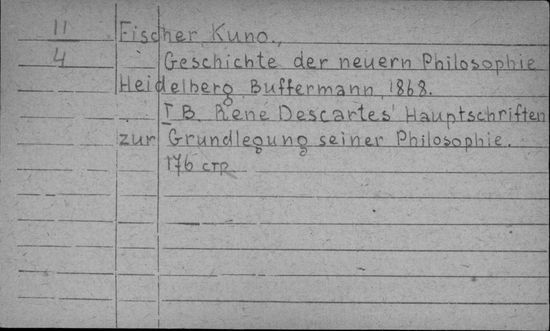 11
4
Fischer, Kuno.,
Geschichte der neuern Philosophie
Heidelberg, Buffermann, 1868.
I B. René Descartes' Hauptschriften
zur Grundlegung seiner Philosophie.
176 стр